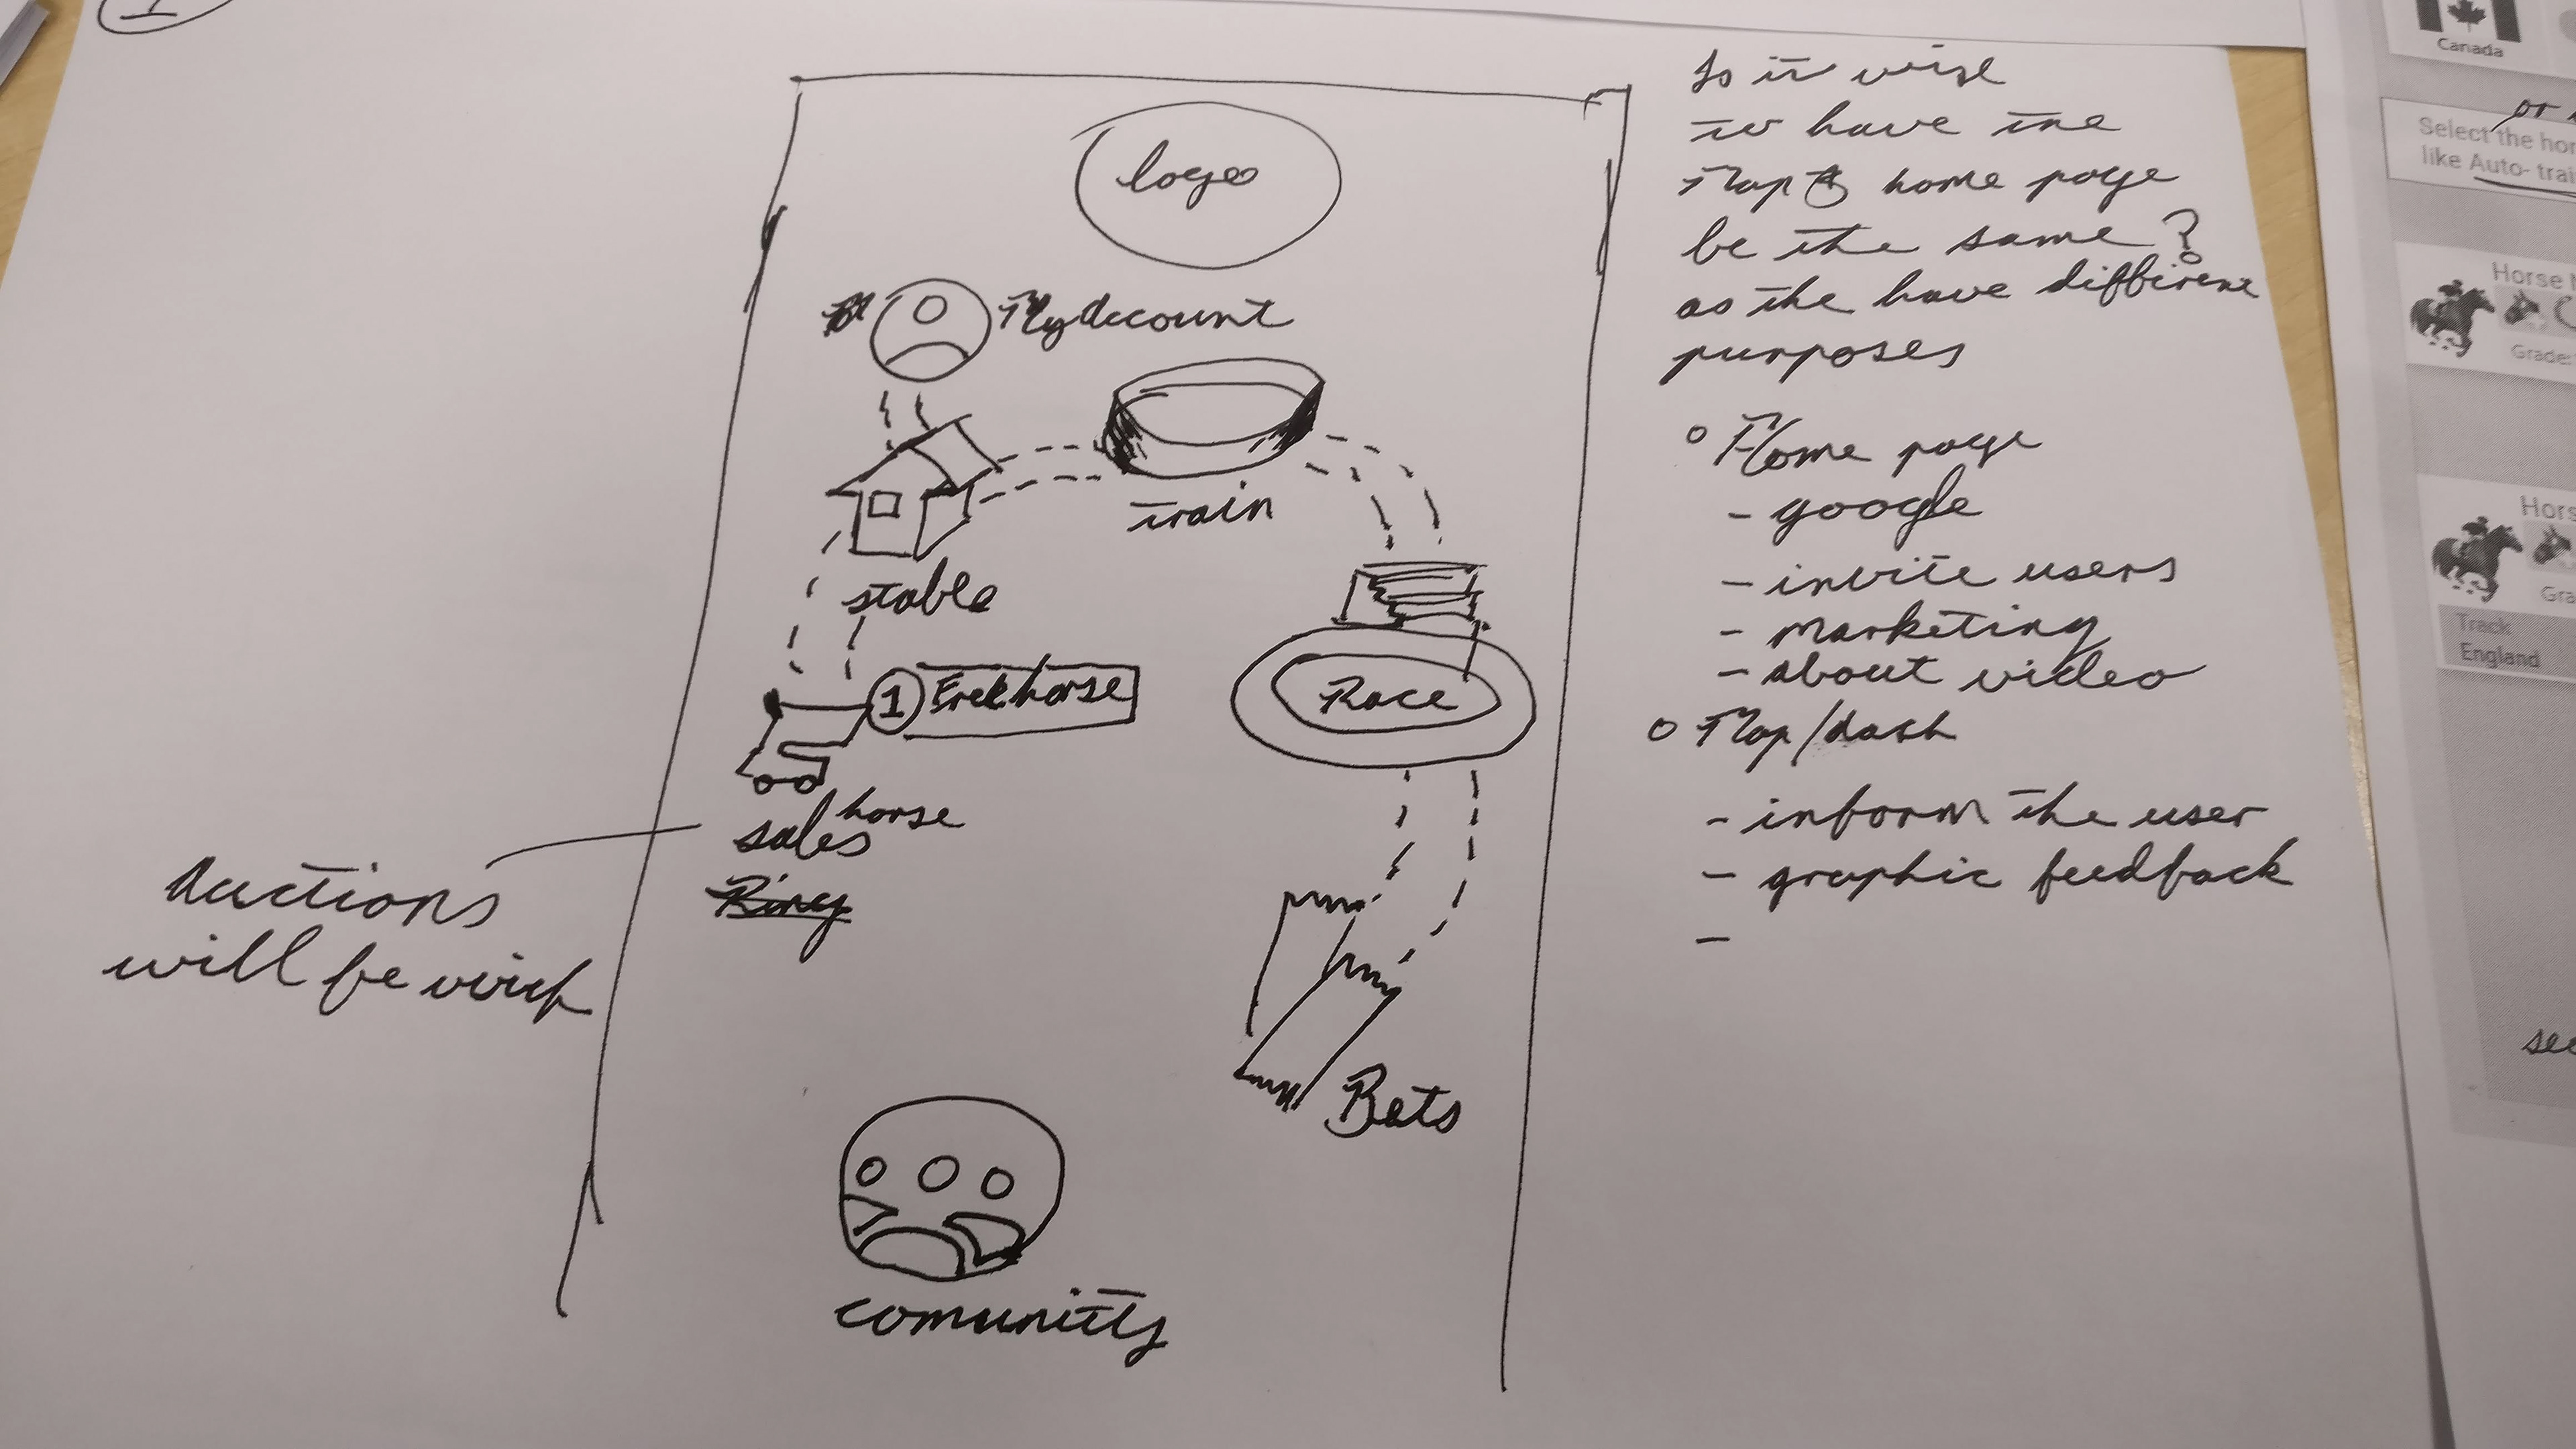 logo
My Account
train
stable
1 Free horse
Race
horse
sales
Ring
Auctions
will be
Bets
comunity
Is it wise
to have the
Map & home page
be the same?
as the have different
purposes
Home page
- google
- invite users
- marketing
- about video
Map/dash
- inform the user
- graphic feedback
-
Canada
or
Select the
like Auto-
Horse
Grade:
Track
England